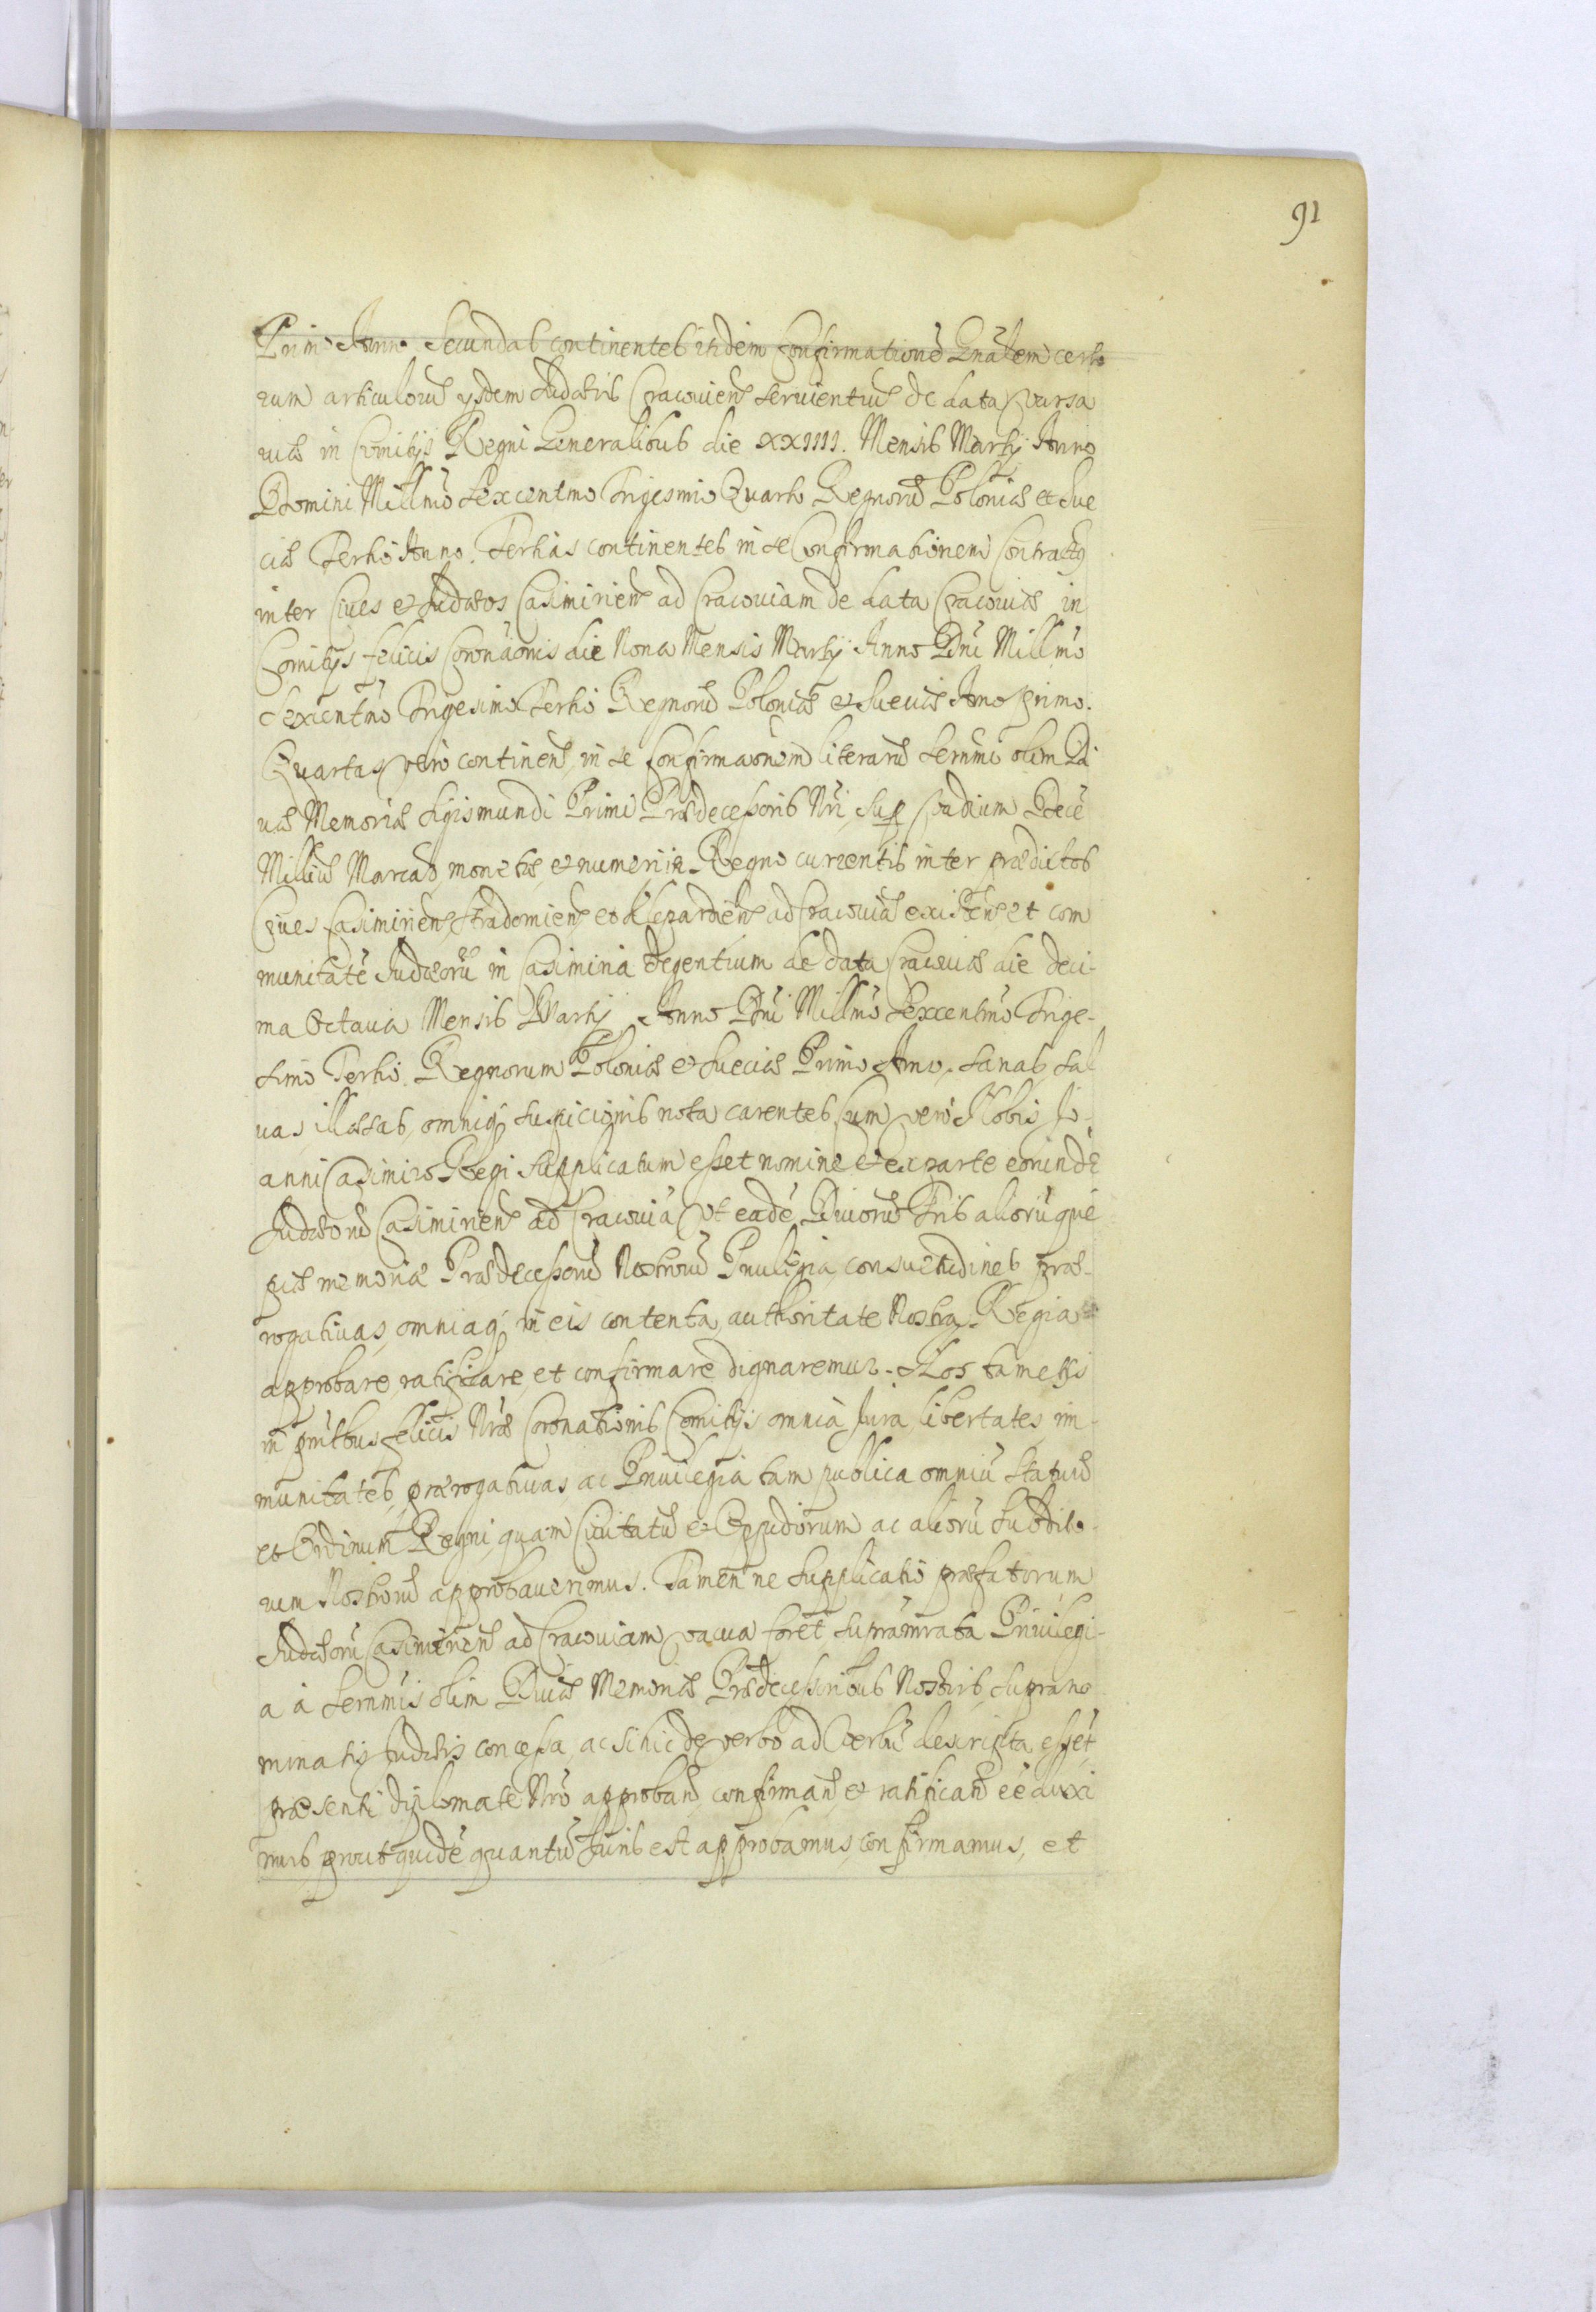 91
Primo Anno Secundas continentes itidem confirmationẽ Gnãlem certo
rum articulorũ ysdem Judæis Cracouien̄ seruientiũ de data Varsa
uiæ in Comitijs Regni Generalibus die XXIIII. Mensis Martij Anno
Domini Millm̃o sexcentmo Trigesimo Quarto Regnorũ Poloniæ et Sue
ciæ Tertio Anno. Tertias continentes in se Confirmationem Contractus
inter Ciues et Judæos Casimirien̄ ad Cracouiam de data Cracouiæ in
Comitijs felicis Coronãonis die Nona Mensis Martij Anno Dñi Millm̃o
sexcentm̃o Trigesimo Tertio Regnorũ Poloniæ et Sueciæ Anno primo.
Quartas vero continen̄, in se confirmãonem literarũ Sernmi olim Di
uæ Memoriæ Sigismundi Primi Prædecessoris Nri, sup Vadium Decẽ
Milliũ Marcas, monetæ, et numeri in Regno currentis inter prædictos
Ciues Casimirien̄, Stradomien̄ et Kleparden̄ ad Cracouiã existen̄ et com
munitatẽ Judæorũ in Casimiria degentium de data Cracouiæ die deci-
ma Octaua Mensis Martij Anno Dñi Millm̃o Sexcentm̃o Trige-
simo Tertio. Regnorum Poloniæ et Sueciæ Primo Anno, sanas, sal
uas illæsas, omniq; suspicionis nota carentes, Cum vero Nobis Jo-
anni Casimiro Regi Supplicatum esset nomine et ex parte eorundẽ
Judæorũ Casimirien̄ ad Cracouiã vt eadẽ Diuorũ Fris aliorũque
piæ memoriæ Prædecessorũ Nostrorũ Priuilegia, consuetudines præ-
rogatiuas, omniaq; in eis contenta, authoritate Nostra Regia
approbare, ratificare, et confirmare dignaremur. Nos tametsi
in pñtbus felicis Nræ Coronationis Comitijs omnia Jura, libertates, im-
munitates, prærogatiuas, ac Priuilegia tam publica omniũ Statuũ
et Ordinum Regni, quam Ciuitatũ et Oppidorum ac aliorũ Subdito-
rum Nostrorũ approbauerimus. Tamen ne Supplicatio præfatorum
Judæorũ Casimirien̄ ad Cracouiam vacua foret, supranrata Priuilegi-
a à Sernmis olim Diuæ Memoriæ Prædecessoribus Nostris, suprano
minatis Judæis concessa, ac si hic de verbo ad Verbũ descripta essẽt,
præsenti diplomate Nrõ approban̄, confirman̄, et ratifican̄ eẽ duxi
mus, prout quidẽ quantũ Juris est approbamus, confirmamus, et